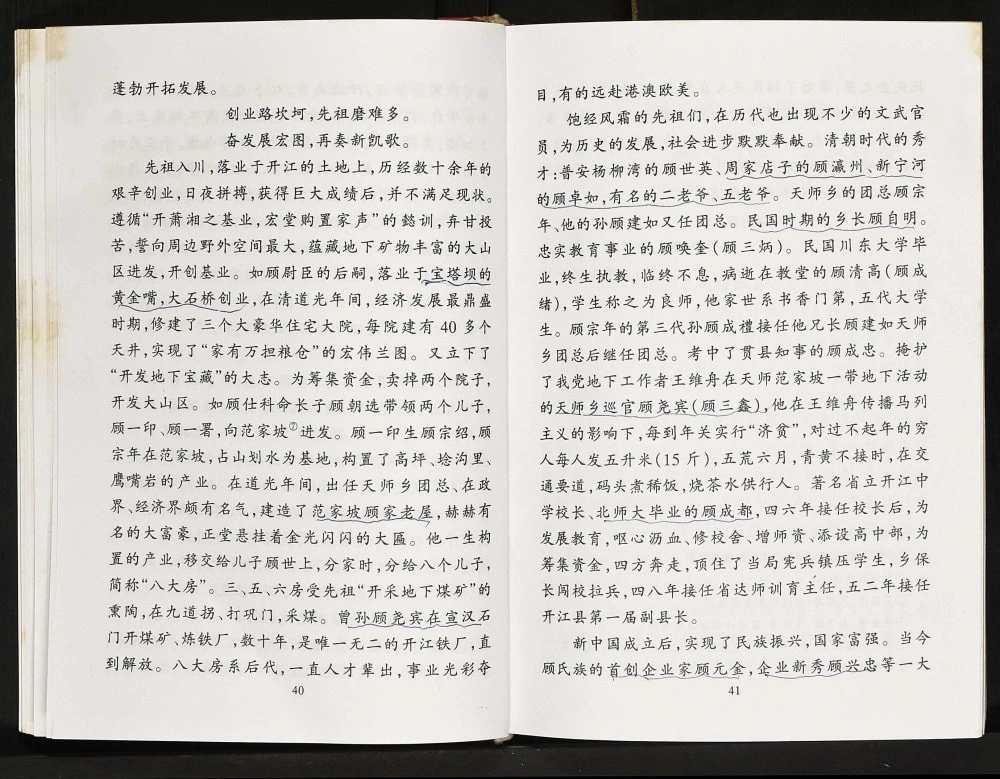 蓬勃开拓发展。
创业路坎坷,先祖磨难多。
奋发展宏图,再奏新凯歌。
先祖入川,落业于开江的土地上,历经数十余年的
艰辛创业,日夜拼搏,获得巨大成绩后,并不满足现状。
遵循“开萧湘之基业,宏堂购置家声”的懿训,弃甘投
苦,誓向周边野外空间最大,蕴藏地下矿物丰富的大山
区进发,开创基业。如顾尉臣的后嗣,落业于宝塔坝的
黄金嘴,大石桥创业,在清道光年间,经济发展最鼎盛
时期,修建了三个大豪华住宅大院,每院建有 40 多个
天井,实现了“家有万担粮仓”的宏伟兰图。又立下了
“开发地下宝藏”的大志。为筹集资金,卖掉两个院子,
开发大山区。如顾仕科命长子顾朝选带领两个儿子,
顾一印、顾一署,向范家坡⑦进发。顾一印生顾宗绍,顾
宗年在范家坡,占山划水为基地,构置了高坪、埝沟里、
鹰嘴岩的产业。在道光年间,出任天师乡团总、在政
界、经济界颇有名气,建造了范家坡顾家老屋,赫赫有
名的大富豪,正堂悬挂着金光闪闪的大匾。他一生构
置的产业,移交给儿子顾世上,分家时,分给八个儿子,
简称“八大房”。三、五、六房受先祖“开采地下煤矿”的
熏陶,在九道拐、打巩门,采煤。曾孙顾尧宾在宣汉石
门开煤矿、炼铁厂,数十年,是唯一无二的开江铁厂,直
到解放。八大房系后代,一直人才辈出,事业光彩夺
40
目,有的远赴港澳欧美。
饱经风霜的先祖们,在历代也出现不少的文武官
员,为历史的发展,社会进步默默奉献。清朝时代的秀
才:普安杨柳湾的顾世英、周家店子的顾瀛州、新宁河
的顾卓如,有名的二老爷、五老爷。天师乡的团总顾宗
年、他的孙顾建如又任团总。民国时期的乡长顾自明。
忠实教育事业的顾唤奎(顾三炳)。民国川东大学毕
业,终生执教,临终不息,病逝在教堂的顾清高(顾成
绪),学生称之为良师,他家世系书香门第,五代大学
生。顾宗年的第三代孙顾成禮接任他兄长顾建如天师
乡团总后继任团总。考中了贯县知事的顾成忠。掩护
了我党地下工作者王维舟在天师范家坡一带地下活动
的天师乡巡官顾尧宾(顾三鑫),他在王维舟传播马列
主义的影响下,每到年关实行“济贫”,对过不起年的穷
人每人发五升米(15 斤),五荒六月,青黄不接时,在交
通要道,码头煮稀饭,烧茶水供行人。著名省立开江中
学校长、北师大毕业的顾成都,四六年接任校长后,为
发展教育,呕心沥血、修校舍、增师资、添设高中部,为
筹集资金,四方奔走,顶住了当局宪兵镇压学生,乡保
长闯校拉兵,四八年接任省达师训育主任,五二年接任
开江县第一届副县长。
新中国成立后,实现了民族振兴,国家富强。当今
顾氏族的首创企业家顾元金,企业新秀顾兴忠等一大
41